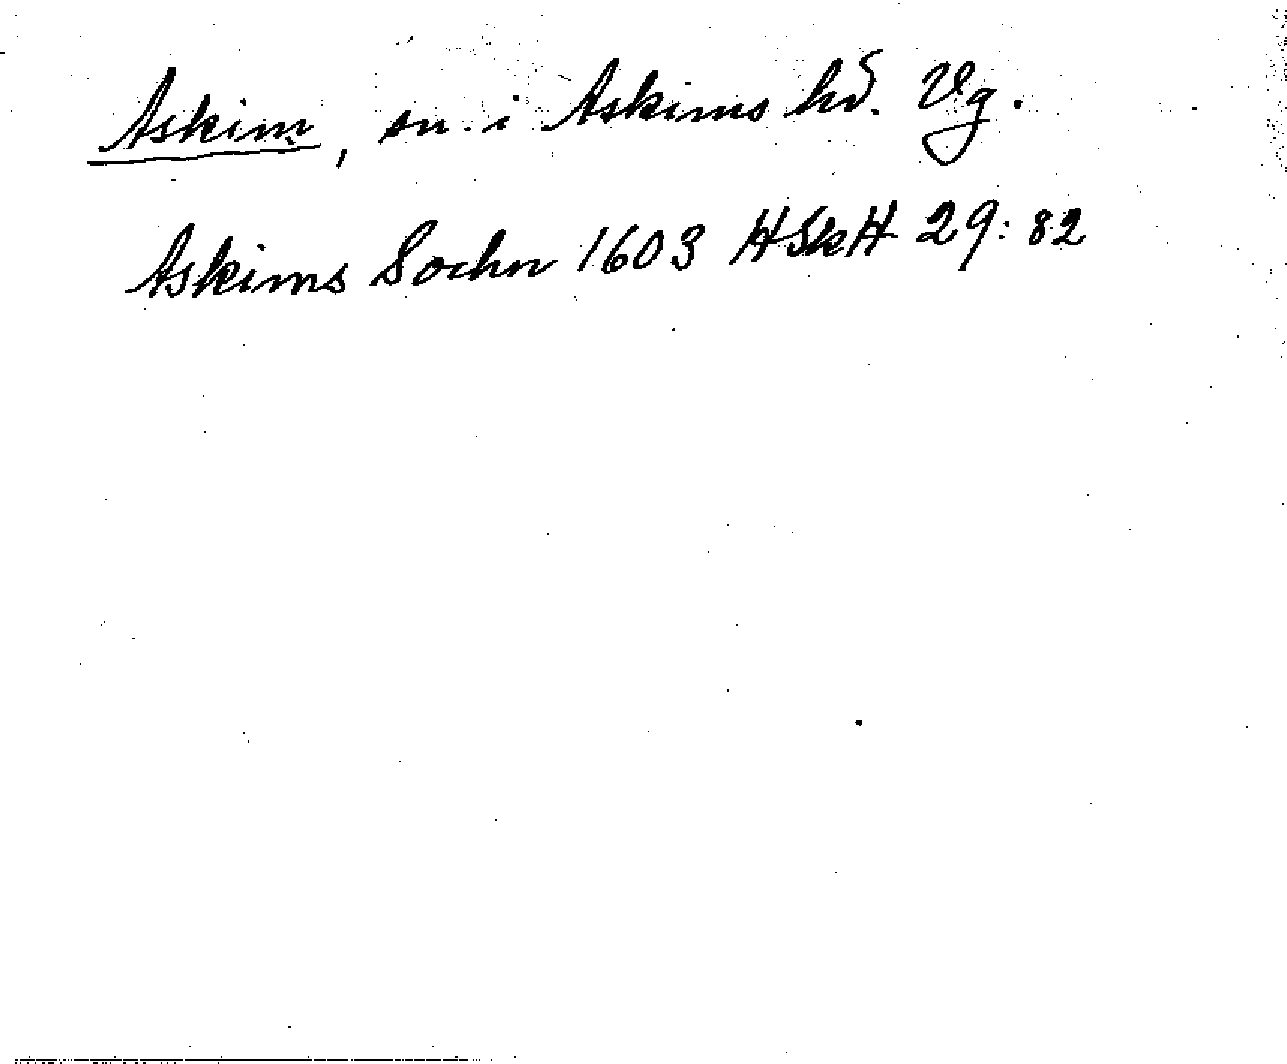 Askim, sn. i Askims hd. Vg.
Askims Sochn 1603 HSkH 29:82